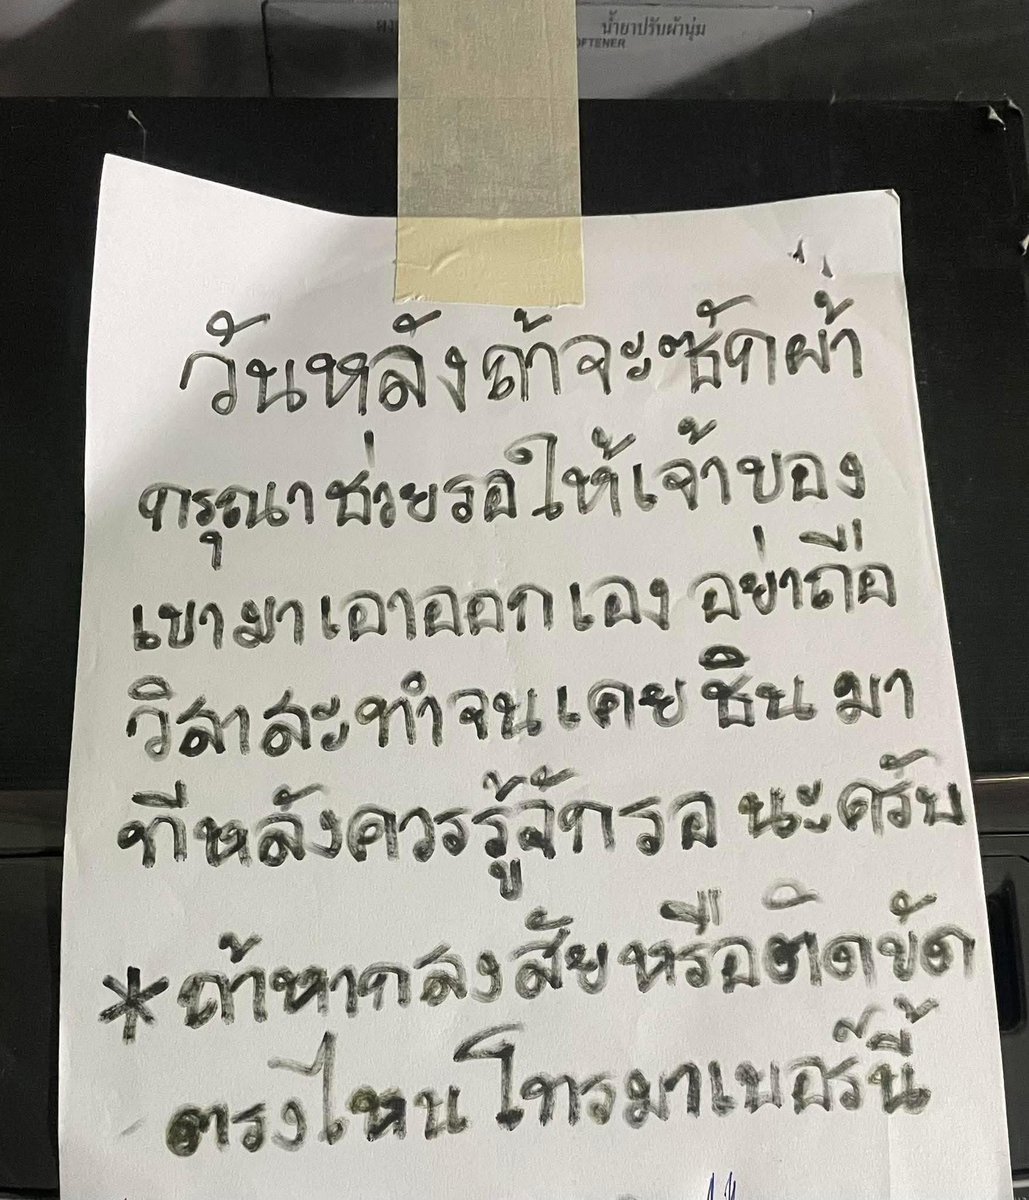 น้ำยาปรับผ้านุ่ม
วันหลังถ้าจะซักผ้า
กรุณาช่วยรอให้เจ้าของ
เขามาเอาออกเอง อย่าถือ
วิสาสะทำจนเคยชิน มา
ทีหลังควรรู้จักรอ นะครับ
*ถ้าหากสงสัยหรือติดขัด
ตรงไหน โทรมาเบอร์นี้